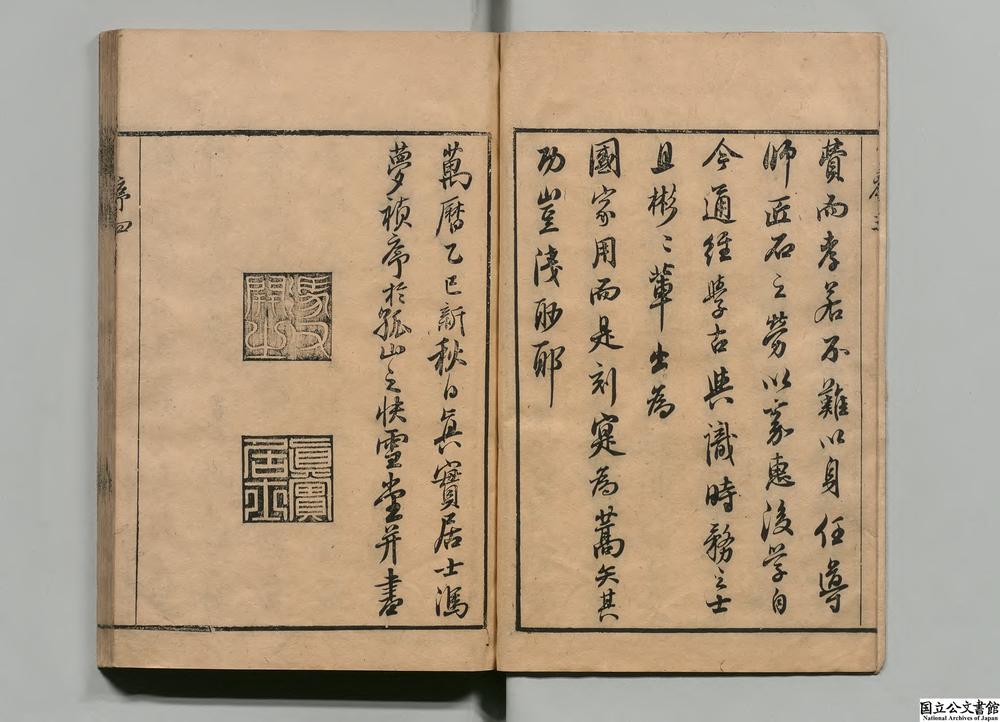 序三
費而孝若不難以身任導
師匠石之勞以嘉惠後学自
今通經學古與識時務之士
且彬〻輩出為
國家用而是刻寔為蒿矢其
功豈淺眇耶
萬曆乙巳新秋日真實居士馮
夢禎序於孤山之快雪堂并書
馮氏開之
真實居士
序四
国立公文書館
National Archives of Japan